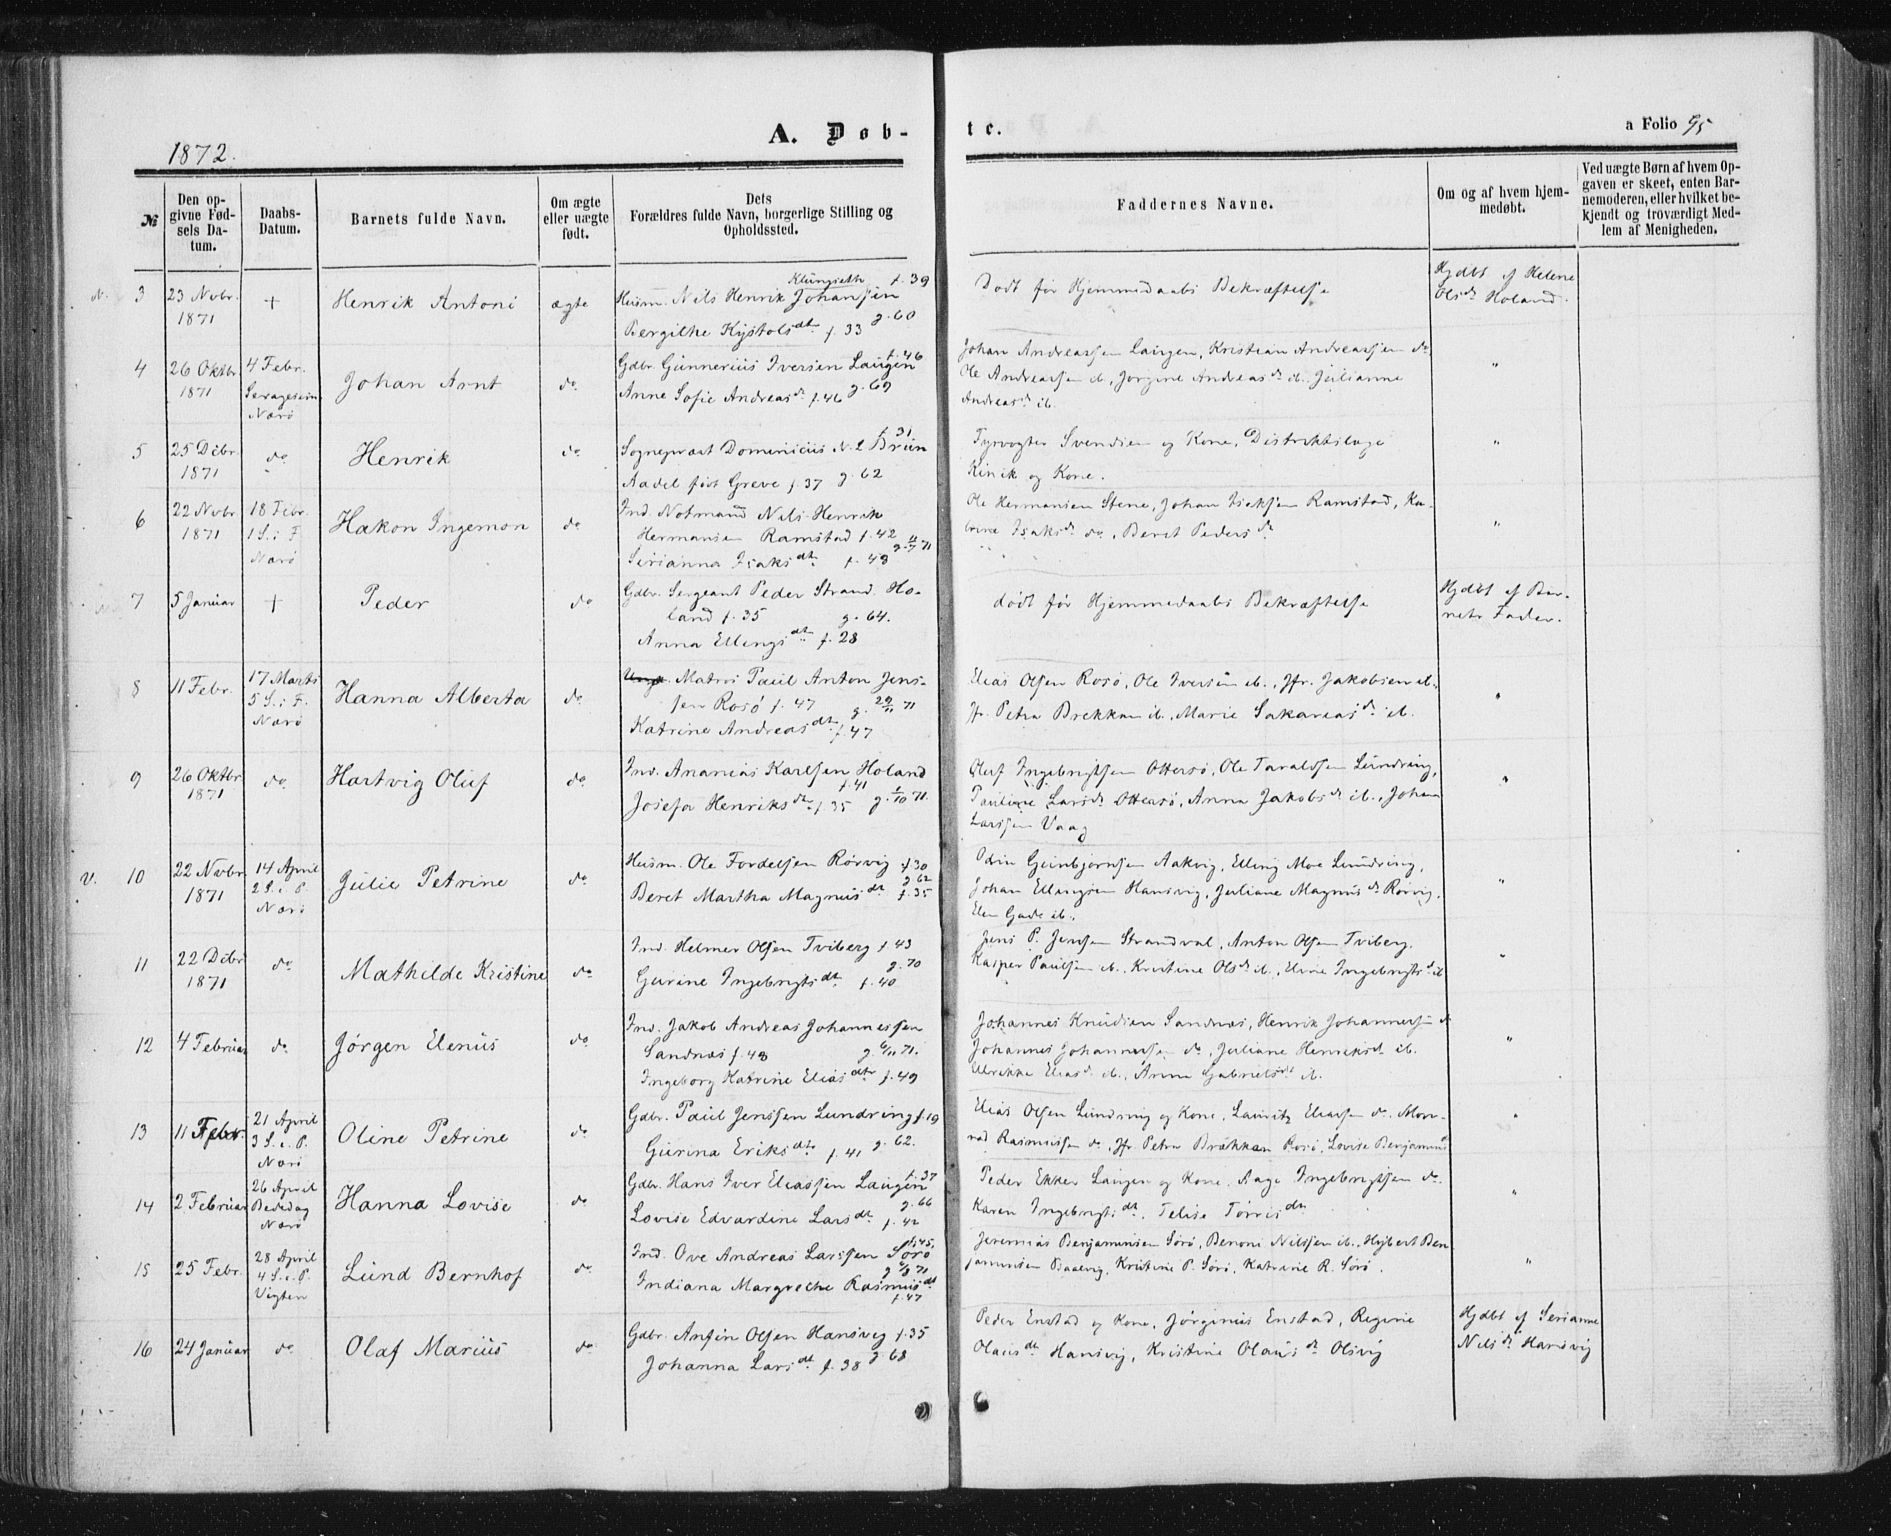 1872.
A. Døb-
te.
a Folio 95
№
Den op-
givne Fød-
sels Da-
tum.
Daabs-
Datum.
Barnets fulde Navn.
Om ægte
eller uægte
født.
Dets
Forældres fulde Navn, borgerlige Stilling og
Opholdssted.
Faddernes Navne.
Om og af hvem hjem-
medøbt.
Ved uægte Børn af hvem Op-
gaven er skeet, enten Bar-
nemoderen, eller hvilket be-
kjendt og troværdigt Med-
lem af Menigheden.
N. 3
23 Novbr.
1871
+
Henrik Antoni
ægte
f. 39
Husm. Nils Henrik Johansen
Bergithe Kystolsdt. f. 33 g. 60
Dødt før Hjemmedaabs Bekræftelse
Hjdbt af Helene
Olsdt Holand.
4
26 Oktbr
1871
4 Febr.
Nærø
Johan Arnt
do
f. 46
Gdbr. Gunnerius Iversen Laugen
Anne Sofie Andreasdt f. 46 g. 69
Johan Andreassen Laugen, Kristian Andreassen do
Ole Andreassen ib, Jørgine Andreasdt ib. Julianne
Andreasdt ib.
"
5
25 Dcbr.
1871
do
Henrik
do
f. 31
Sogneprest Dominicus N. L Brun
Aadel født Greve f 37 g. 62
Fyrvogter Svendsen og Kone, Distriktslæge
Kinck og Kone.
"
6
22 Novbr
1871
18 Febr.
1 S. i F.
Nærø
Hakon Ingemon
do
Ind. Notmand Nils Henrik
Hermansen Ramstad f. 42
Serianna Isaksdt. f. 48
Ole Hermansen Stene, Johan Isaksen Ramstad, Ka-
trine Isaksdt do, Beret Pedersdt
"
7
5 Januar
+
Peder
do
Gdbr. Sergeant Peder Strand Ho-
land f. 35 g. 64.
Anna Ellingsdt f. 28
dødt før Hjemmedaabs Bekræftelse
Hjdbt af Bar-
nets Fader.
8
11 Febr.
17 Marts
5 S. i F.
Nærø
Hanna Alberta
do
Matros Paul Anton Jens-
sen Rosø f. 47 g. 29/11 71
Katrine Andreasdt. f. 47
Elias Olsen Rosø, Ole Iversen ib., Jfr. Jakobsen ib.,
Jfr. Petra Brekkan ib., Marie Sakariasdt ib.
"
9
26 Oktbr
1871
do
Hartvig Oluf
do
Ind. Ananias Karlsen Holand
f. 41
Josefa Henriksdt. f. 35 g. 1/10 71.
Oluf Ingebrigtsen Ottersø, Ole Taraldsen Lundring,
Pauline Larsdt Ottersø, Anna Jakobsdt ib., Johan
Larssen Vaag
"
V. 10
22 Novbr
1871
14 April
2 S. e. P.
Nærø
Julie Petrine
do
Husm. Ole Fordelsen Rørvig f. 30
g 62
Beret Martha Magnusdt f. 35
Odin Gunbjørnsen Aakvig, Elling Moe Lundring,
Johan Ellingsen Hansvig, Juliane Magnusdt Rørvig,
Elen Gade ib.
"
11
22 Dcbr
1871
do
Mathilde Kristine
do
Ind. Helmer Olsen Tviberg f 43
g. 70
Gurine Ingebrigtsdt. f. 40
Jens P. Jenssen Strandval, Anton Olsen Tviberg,
Kasper Paulsen ib., Kristine Olsdt ib., Eline Ingebrigtsdt ib
"
12
4 Februar
do
Jørgen Elenus
do
Ind. Jakob Andreas Johannessen
Sandnæs f. 48 g. 6/11 71.
Ingeborg Katrine Eliasdtr f. 49
Johannes Knudsen Sandnæs, Henrik Johannessen do
Johannes Johannessen do, Juliane Henriksdt ib.
Ulrikke Eliasdt ib., Anna Gabrielsdt ib.
"
13
11 Febr.
21 April
3 S. e. P.
Nærø
Oline Petrine
do
Gdbr. Paul Jenssen Lundring f. 19
Gurina Eriksdt. f. 41 g. 62.
Elias Olsen Lundring og Kone, Lauritz Eliassen do. Mon-
rad Rasmussen do, Jfr Petra Brækkan Rosø, Lovise Benjamins
"
14
2 Februar
26 April
Bededag
Nærø
Hanna Lovise
do
f. 37
Gdbr. Hans Iver Eliassen Laugen
g. 66
Lovise Edvardine Larsdt f. 42
Peder Ekker Laugen og Kone, Aage Ingebrigtsen do.
Karen Ingebrigtsdt, Felise Tørrisdtr
"
15
25 Febr.
28 April
4 S. e. P.
Vigten
Lund Bernhof
do
f. 45.
Ind. Ove Andreas Larssen Sørø
Indiana Margrethe Rasmusdt
f. 47
Jeremias Benjaminsen Sørø, Benoni Nilssen ib., Hejbert Ben-
jaminsen Baalvig, Kristine P. Sørø, Katrine R. Sørø.
"
16
24 Januar
do
Olaf Marius
do
Gdbr. Anfin Olsen Hansvig f. 35
Johanna Larsdt f. 38 g 68
Peder Enstad og Kone, Jørginus Enstad, Regine
Olausdt Hansvig, Kristine Olausdt Olsvig
Hjdbt af Serianne
Nilsdt Hansvig